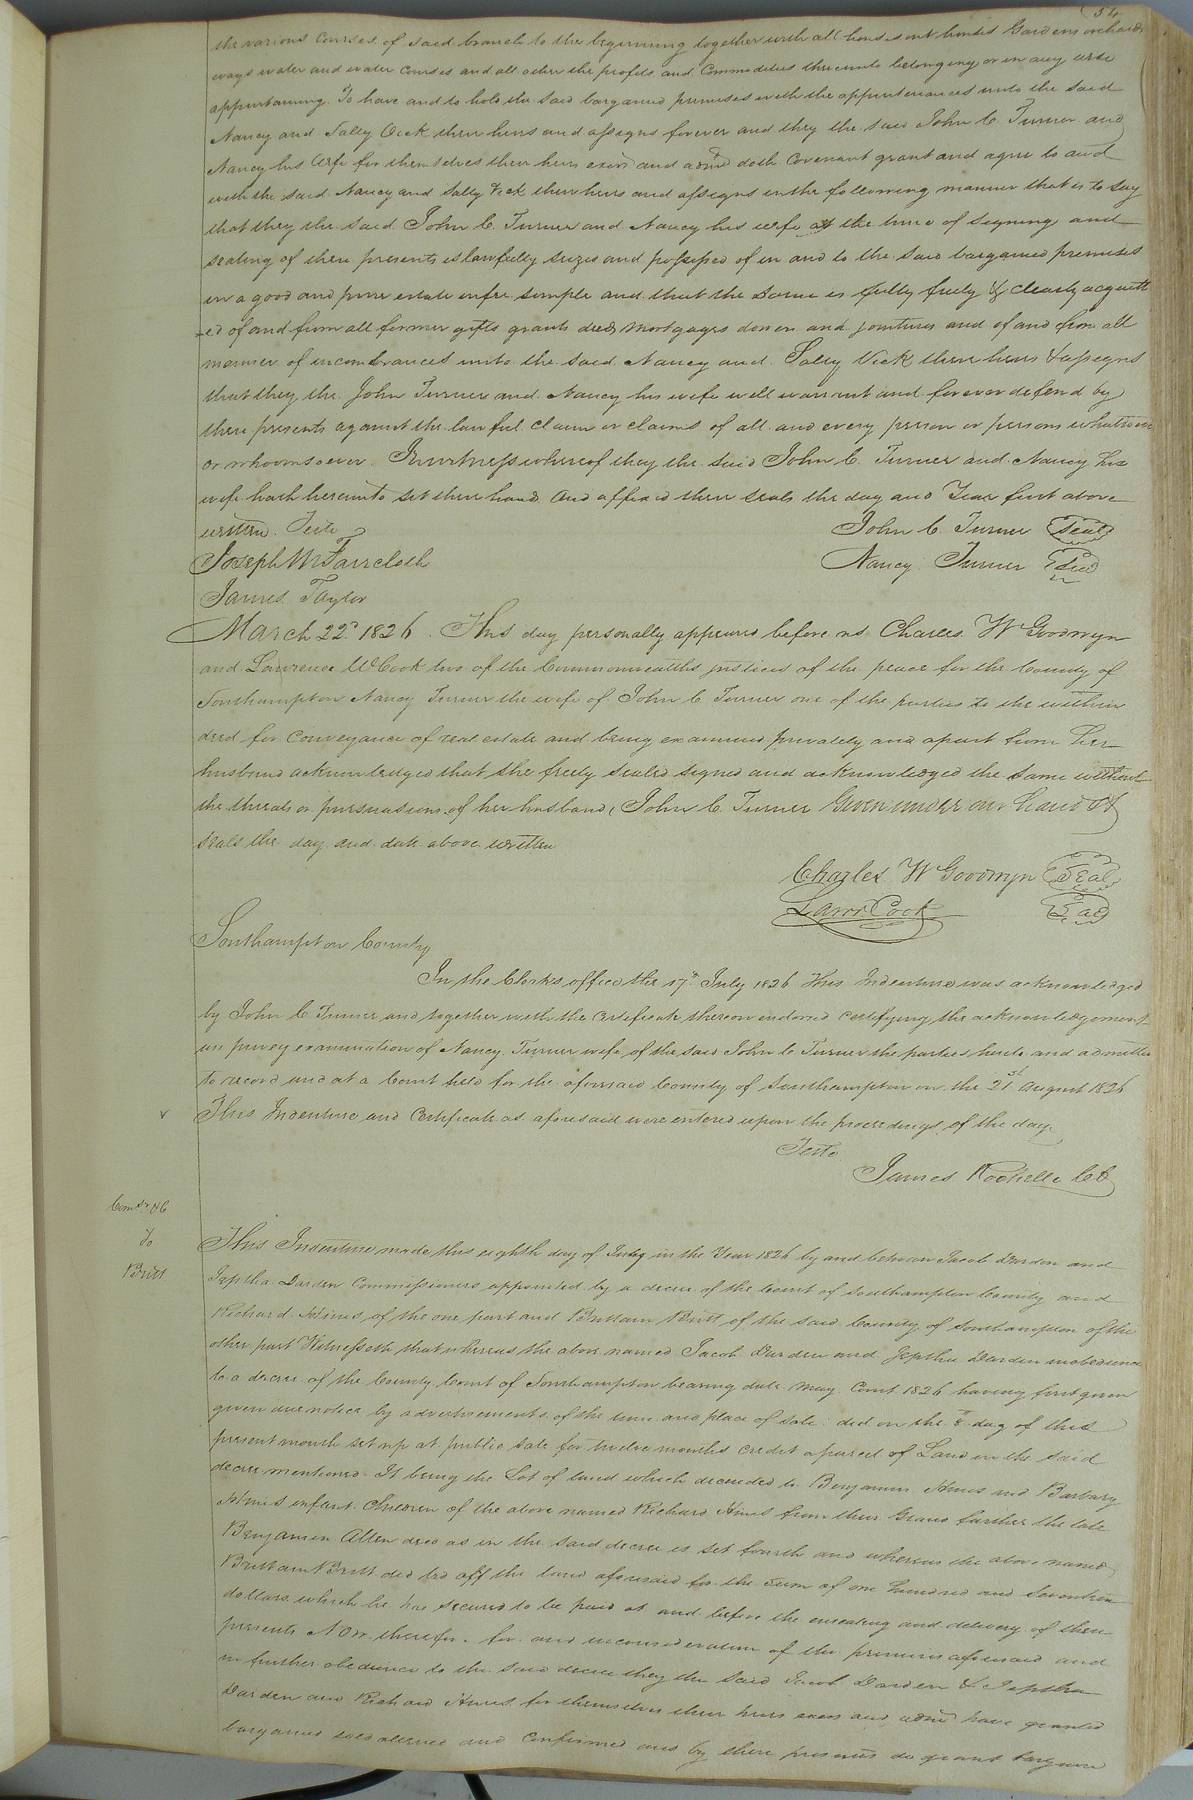 54
the various Courses of said branch to the beginning together with all houses out houses Gardens orchards
ways water and water Courses and all other the profits and Commodities thereunto belonging or in any wise
appurtaining To have and to hold the said bargained premises with the appurtenances unto the said
Nancy and Sally Vick their heirs and assigns forever and they the said John C Turner and
Nancy his wife for themselves their heirs exors and admrs doth Covenant grant and agree to and
with the said Nancy and Sally Vick their heirs and assigns in the following manner that is to say
that they the said John C. Turner and Nancy his wife at the time of signing and
sealing of these presents is lawfully seized and possessed of in and to the said bargained premises
in a good and pure estate in fee simple and that the same is fully freely & clearly acquitt
ed of and from all former gifts grants deeds mortgages dowers and jointures and of and from all
manner of incombrances unto the said Nancy and Sally Vick there heirs & assigns
that they the John Turner and Nancy his wife will warrant and forever defend by
these presents against the lawful claim or claims of all and every person or persons whatsoever
or whoomsoever In witness whereof they the said John C. Turner and Nancy his
wife hath hereunto set their hand and affixed their seals the day and Year first above
written Teste John C. Turner Seal
Joseph W Faircloth Nancy Turner Seal
James Taylor
March 22d 1826. This day personally appeared before us Charles W Goodwyn
and Lawrence W Cook two of the Commonwealths justices of the peace for the County of
Southampton Nancy Turner the wife of John C Turner one of the parties to the within
deed for conveyance of real estate and being examined privately and apart from her
husband acknowledged that she freely sealed signed and acknowledged the same without
the threats or pursuasions of her husband, John C. Turner Given under our hands &
seals the day and date above written
Charles W Goodwyn Seal
Lawr Cook Seal
Southampton County
In the Clerks office the 17th July 1826 This Indenture was acknowledged
by John C Turner and together with the Certificate thereon endorsed certifying the acknowledgement
in privey examination of Nancy Turner wife of the said John C Turner the parties hereto and admitted
to record and at a Court held for the aforesaid County of Southampton on the 21st August 1826
v This Indenture and Certificate as aforesaid were entered upon the proceedings of the day
Teste
James Rochelle CC
Comsr &C
To
Britt
This Indenture made this eighth day of July in the Year 1826 by and between Jacob Darden and
Jeptha Darden Commissioners appointed by a decree of the Court of Southampton County and
Richard Hines of the one part and Brittain Britt of the said County of Southampton of the
other part Witnesseth that whereas the above named Jacob Darden and Jeptha Darden in obedience
to a decree of the County Court of Southampton bearing date May Court 1826 having first given
given due notice by advertisements of the time and place of sale did on the 8th day of this
present month set up at public sale for twelve months credit a parcel of Land in the said
decree mentioned It being the Lot of land which decended to Benjamin Hines and Barbary
Hines infant Children of the above named Richard Hines from their Grand farther the late
Benjamin Allen decd as in the said decree is set fourth and whereas the above named
Brittain Britt did bid off the land aforesaid for the sum of one hundred and seventeen
dollars which he has secured to be paid at and before the ensealing and delivery of these
presents Now therefor for and in consideration of the premises aforesaid and
in further obedience to the said decree they the said Jacob Darden & Jeptha
Darden and Richard Hines for themselves their heirs exors and admrs have granted
bargained sold aliened and Confirmed and by these presents do grant bargain